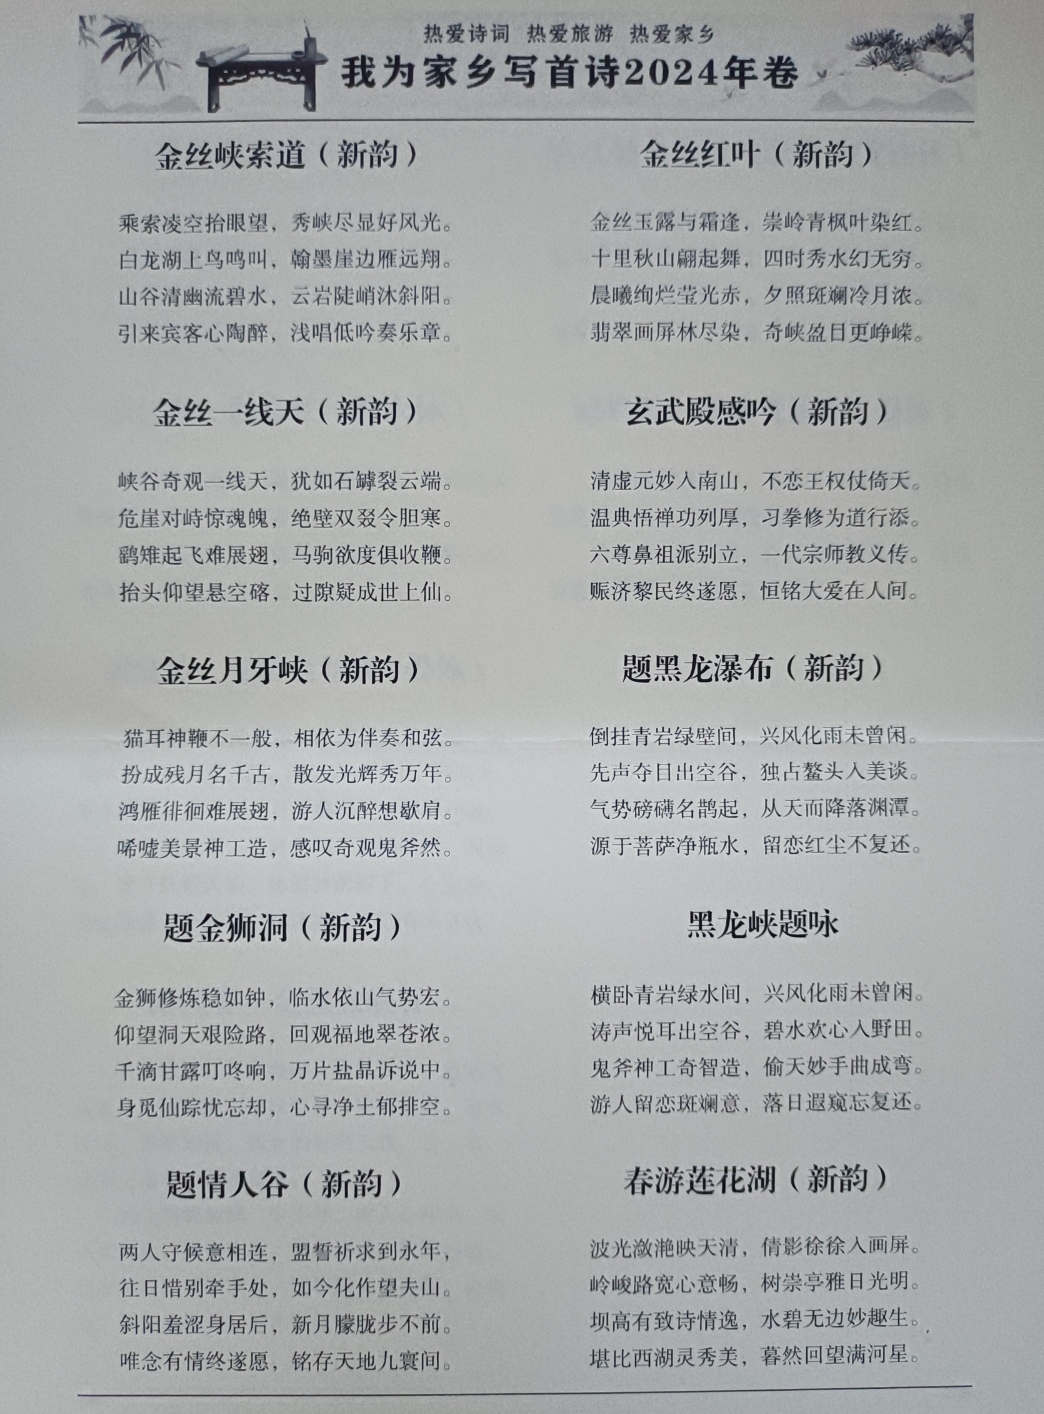 热爱诗词 热爱旅游 热爱家乡
我为家乡写首诗2024年卷
金丝峡索道（新韵）
乘索凌空抬眼望，秀峡尽显好风光。
白龙湖上鸟鸣叫，翰墨崖边雁远翔。
山谷清幽流碧水，云岩陡峭沐斜阳。
引来宾客心陶醉，浅唱低吟奏乐章。
金丝一线天（新韵）
峡谷奇观一线天，犹如石罅裂云端。
危崖对峙惊魂魄，绝壁双叕令胆寒。
鹞雉起飞难展翅，马驹欲度俱收鞭。
抬头仰望悬空硌，过隙疑成世上仙。
金丝月牙峡（新韵）
猫耳神鞭不一般，相依为伴奏和弦。
扮成残月名千古，散发光辉秀万年。
鸿雁徘徊难展翅，游人沉醉想歇肩。
唏嘘美景神工造，感叹奇观鬼斧然。
题金狮洞（新韵）
金狮修炼稳如钟，临水依山气势宏。
仰望洞天艰险路，回观福地翠苍浓。
千滴甘露叮咚响，万片盐晶诉说中。
身觅仙踪忧忘却，心寻净土郁排空。
题情人谷（新韵）
两人守候意相连，盟誓祈求到永年，
往日惜别牵手处，如今化作望夫山。
斜阳羞涩身居后，新月朦胧步不前。
唯念有情终遂愿，铭存天地九寰间。
金丝红叶（新韵）
金丝玉露与霜逢，崇岭青枫叶染红。
十里秋山翩起舞，四时秀水幻无穷。
晨曦绚烂莹光赤，夕照斑斓冷月浓。
翡翠画屏林尽染，奇峡盈日更峥嵘。
玄武殿感吟（新韵）
清虚元妙入南山，不恋王权仗倚天。
温典悟禅功列厚，习拳修为道行添。
六尊鼻祖派别立，一代宗师教义传。
赈济黎民终遂愿，恒铭大爱在人间。
题黑龙瀑布（新韵）
倒挂青岩绿壁间，兴风化雨未曾闲。
先声夺目出空谷，独占鳌头入美谈。
气势磅礴名鹊起，从天而降落渊潭。
源于菩萨净瓶水，留恋红尘不复还。
黑龙峡题咏
横卧青岩绿水间，兴风化雨未曾闲。
涛声悦耳出空谷，碧水欢心入野田。
鬼斧神工奇智造，偷天妙手曲成弯。
游人留恋斑斓意，落日遐窥忘复还。
春游莲花湖（新韵）
波光潋滟映天清，倩影徐徐入画屏。
岭峻路宽心意畅，树崇亭雅日光明。
坝高有致诗情逸，水碧无边妙趣生。
堪比西湖灵秀美，暮然回望满河星。